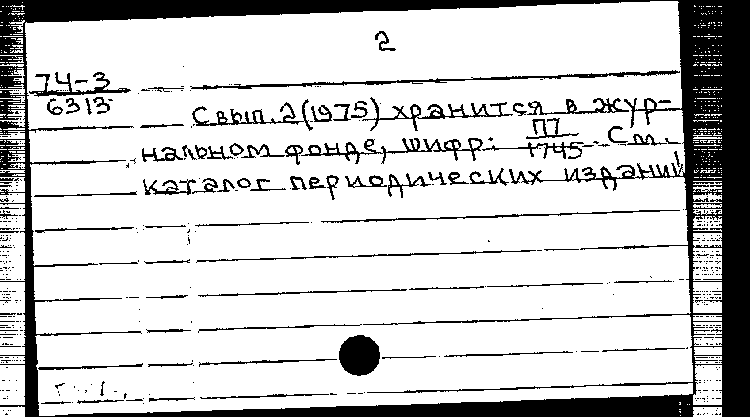 2
74-3
6313
С вып. 2 (1975) хранится в жур-
нальном фонде, шифр: П7/1745. См.
каталог периодических изданий